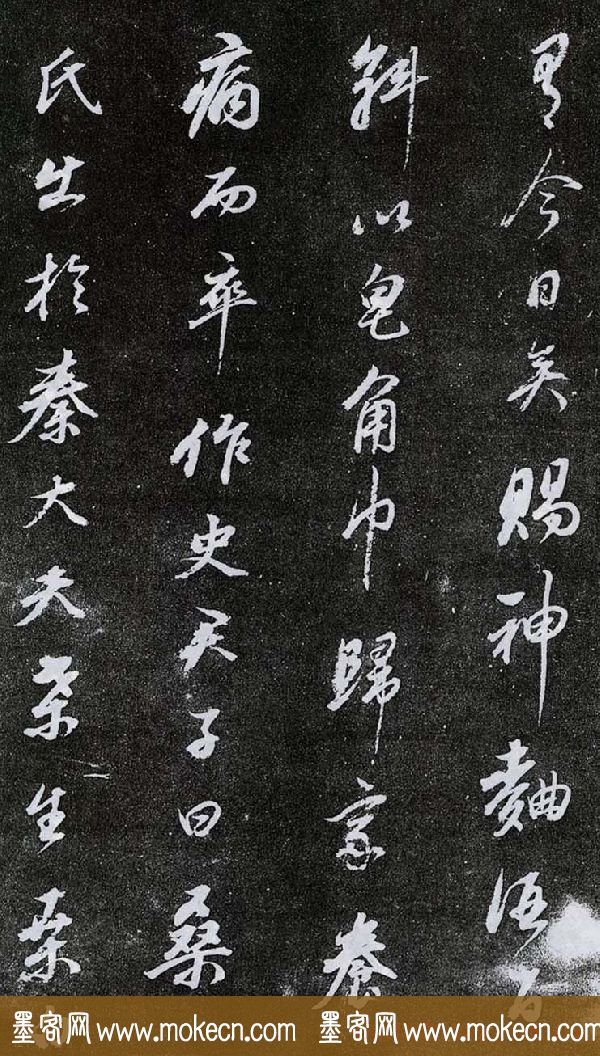 有今日矣賜神麴伍百
斛以皂角巾歸家養
病而卒作史君子曰桑
氏出於秦大夫桑生桑
墨客网 www.mokecn.com 墨客网 www.mokecn.com